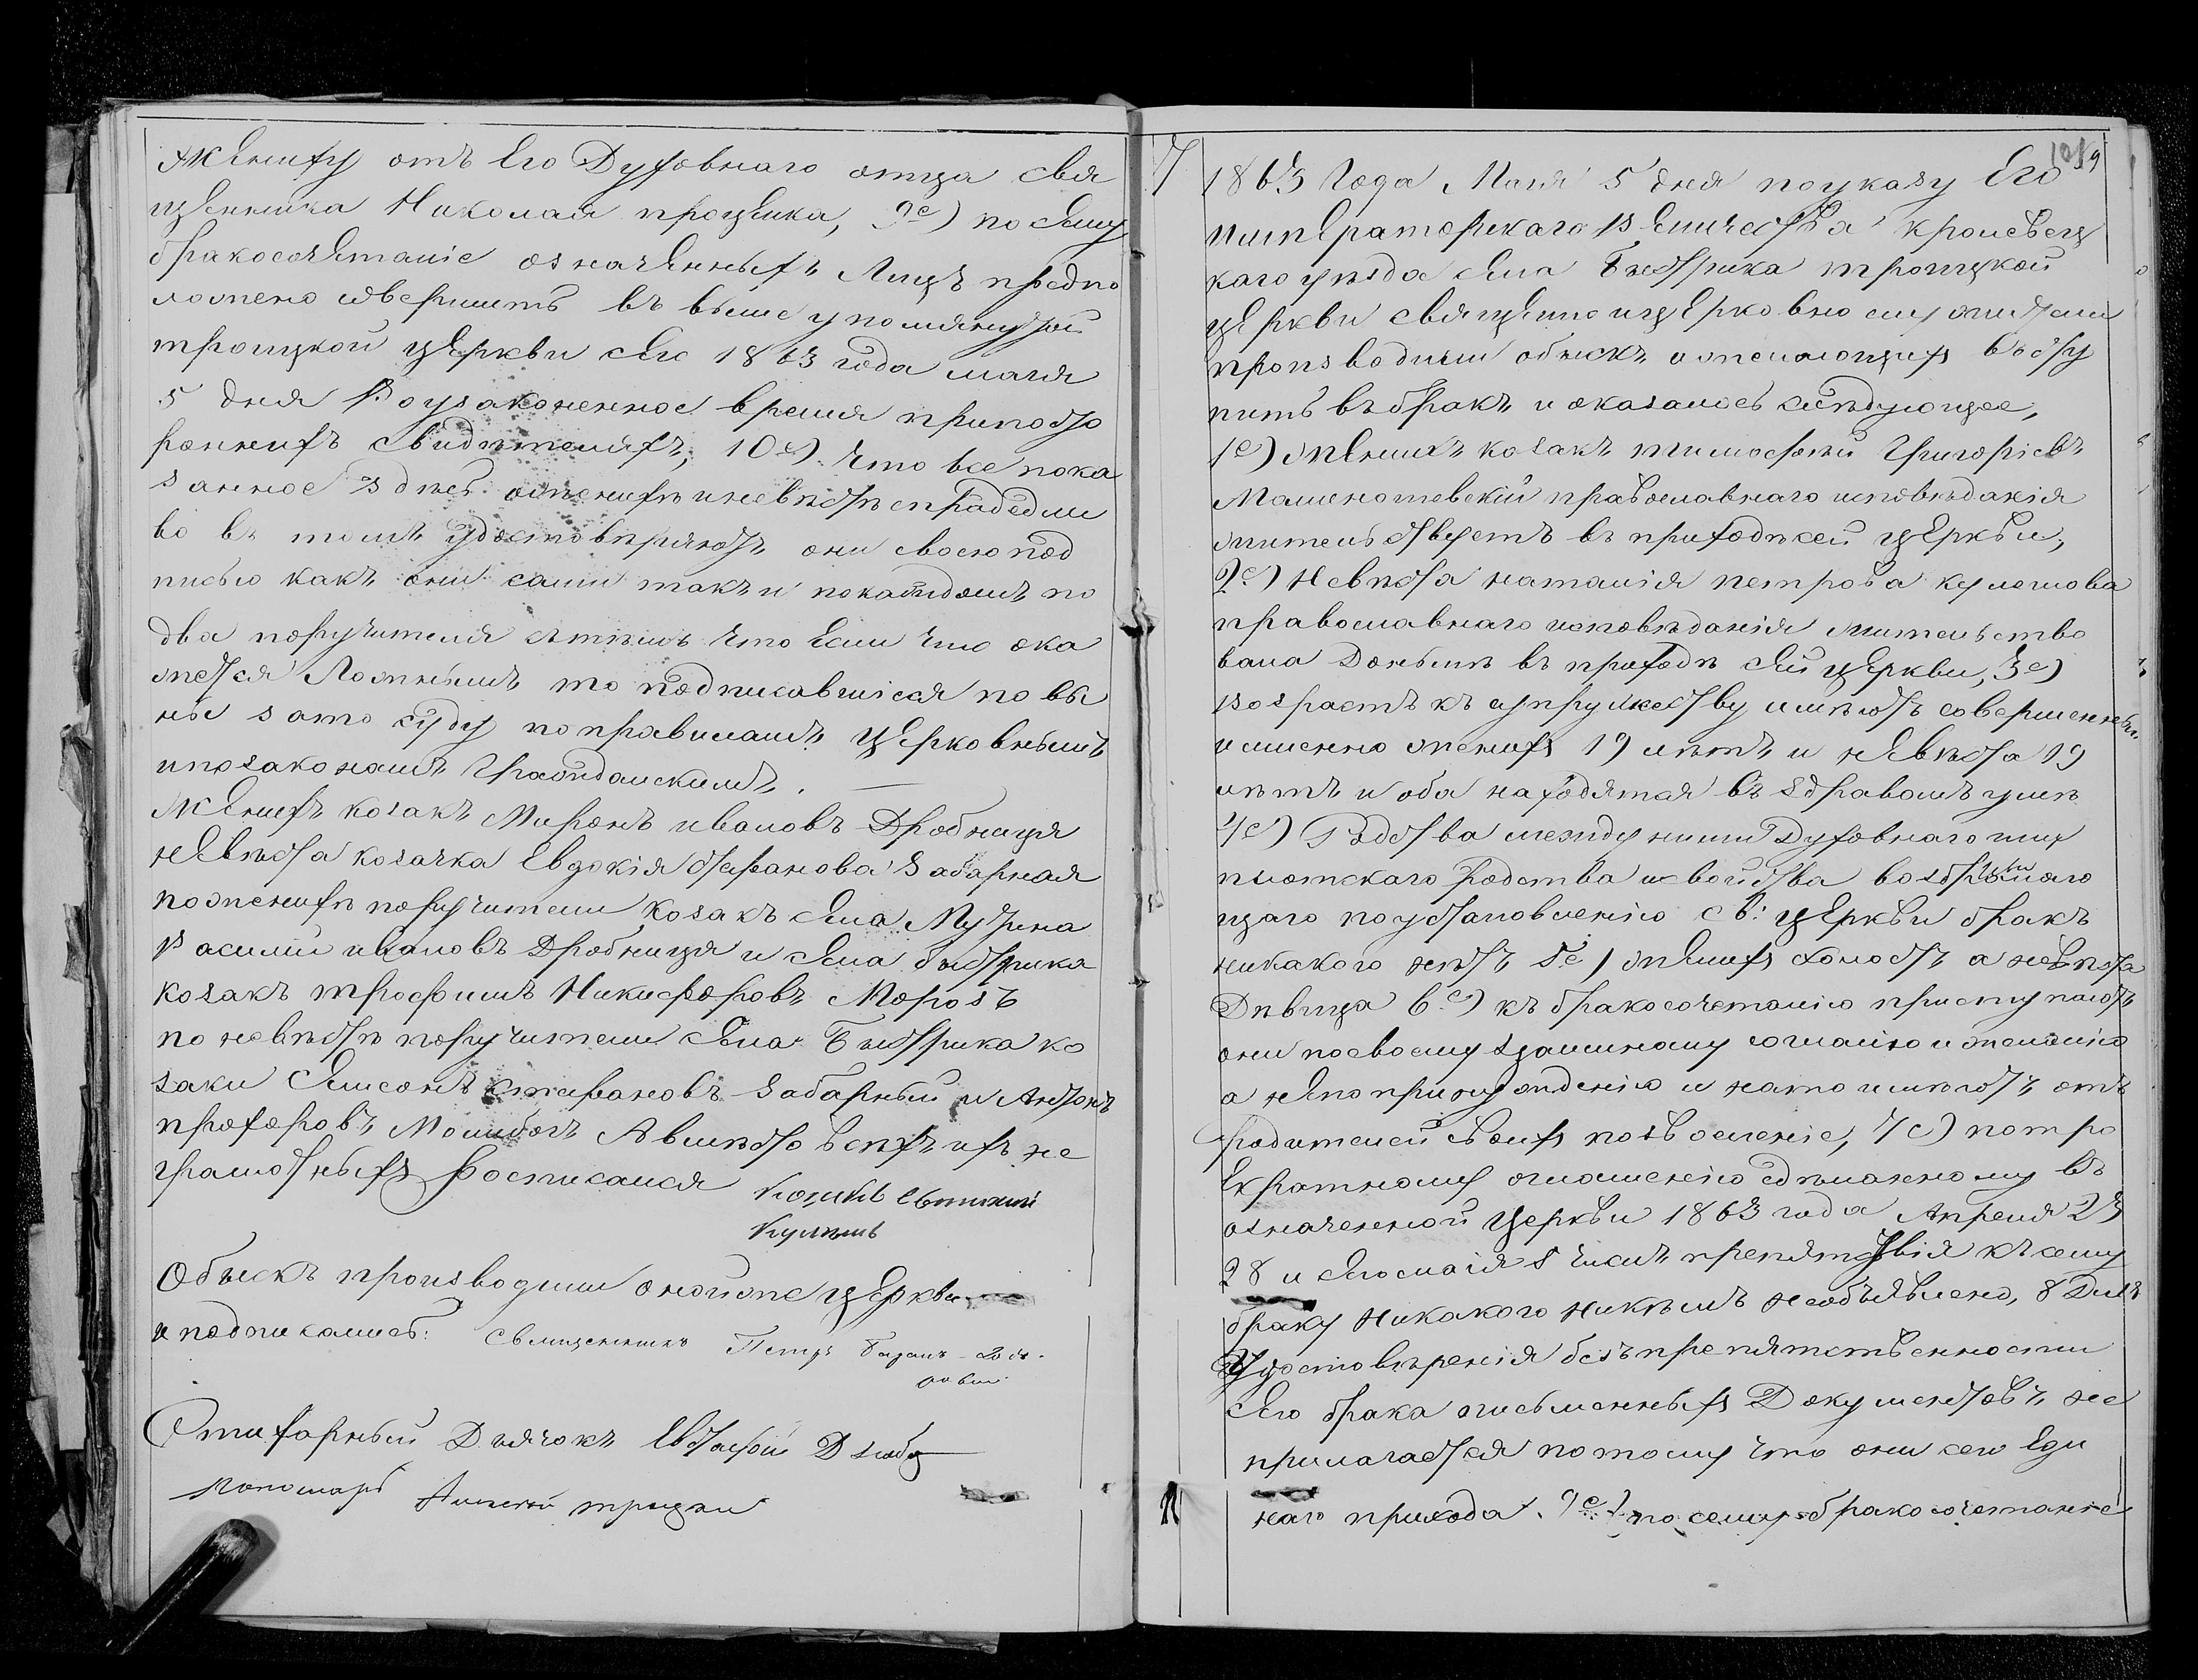 жениху отъ Его Духовнаго отца свя
щенника Николая процEнка, 9е) по сему
бракосочетаніе означенныхъ Лицъ предпо
ложено совершить въ выше упомянутой
троицкой церкви сего 1863 года маія
5 дня Воузаконенное время припосто
роннихъ свидѣтеляхъ, 10е) что все пока
занное здесь оженихѣ иневѣстѣ справедли
во въ томъ удостовѣряютъ они своею под
писью какъ они сами такъ и покаждомъ по
два поручителя стѣмъ что Если что ока
жется Ложнымъ то подписавшіеся повы
ны зато суду поправиламъ церковнымъ
ипозаконамъ Гражданскимъ.
Женихъ козакъ Миронъ ивановъ Дробниця
невѣста козачка Евдокія стефанова Забарная
поженихѣ поручители козакъ села Мутина
Василий ивановъ Дробниця и села быстрика
козакъ трофимъ Никифоровъ Морозъ
по невѣстѣ поручители села Быстрика ко
заки Самсонъ стефановъ Забарный и Антонъ
прохоровъ Авмѣсто всѣхъ ихъ не
грамотныхъ росписался
Обыскъ производили онойже церкви
и подписались: Священникъ Петръ
Стихарный Дьячокъ Евстафій Дзюба
Пономарь Алексѣй троцкий
7
1863 Года Маія 5 дня поуказу Его
императорскаго Величества кролевец
каго уѣзда села Быстрика троицкой
церкви священно ицерковно служители
производили обыскъ ожелающихъ всту
пить вбракъ и оказалось слѣдующее,
1е) женихъ козакъ тимофей Григоріевъ
православнаго исповѣданія
жительствуетъ въ приходѣ сей церкви,
2е) Невѣста наталія петрова кулешова
православнаго исповѣданія жительство
вала Донынѣ въ приходѣ сей церкви, 3е)
возрастъ къ супружеству имѣютъ совершенный
иименно женихъ 19 лѣтъ и невѣста 19
лѣтъ и оба находятся въ здравомъ умѣ
4е) Родства между ними Духовнаго или
плотскаго родства исвойства возбраняю
щаго поустановленію св: церкви бракъ
никакого нѣтъ 5е) женихъ холостъ а невѣста
Дѣвица 6е) къ бракосочетанію приступаютъ
они посвоему взаимному согласію и желанію
а непопринужденію и нато имѣютъ отъ
родителей своихъ позволеніе, 7е) потро
Екратному оглашенію сдѣланному въ
означенной церкви 1863 года Апреля 23
28 и сегомаія 5 чиселъ препятствія къ сему
браку никакого никѣмъ необъявлено, 8 Для
удостовѣренія безпрепятственности
сего брака письменныхъ Документовъ не
прилагается потому что они сего Еди
наго прихода. 9е) по сему бракосочетаніе